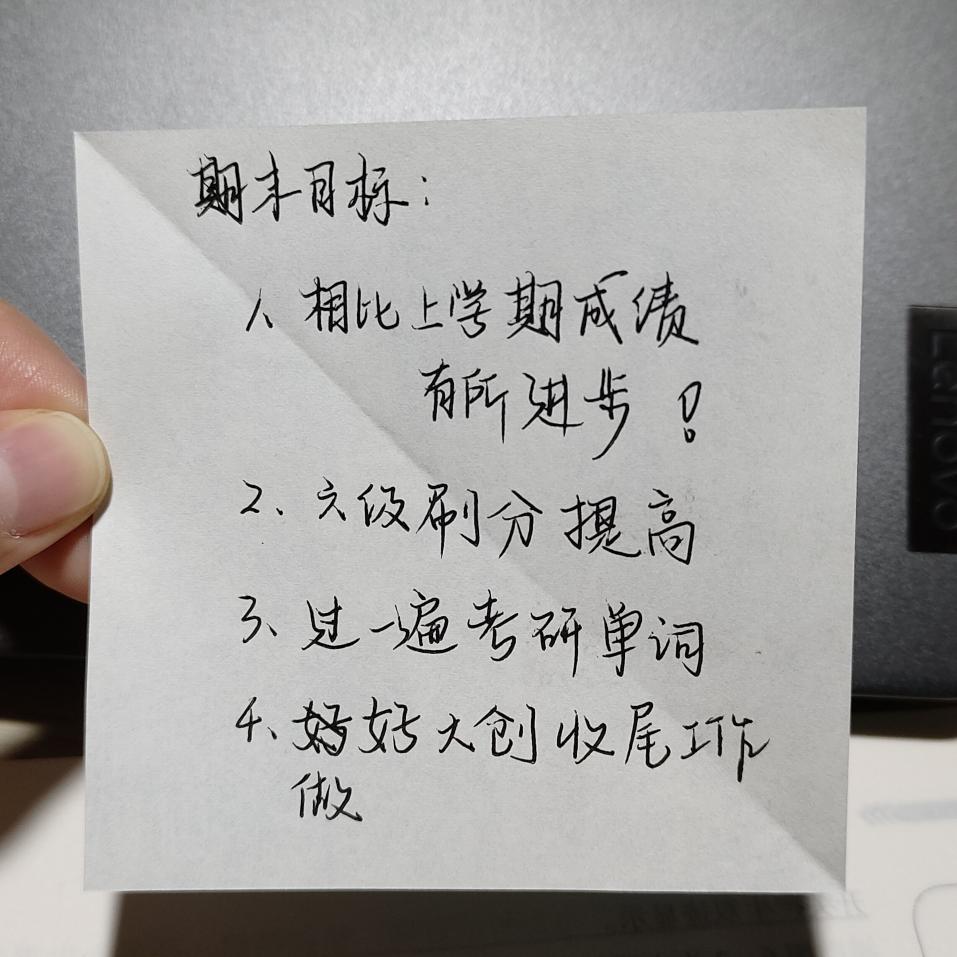 期末目标：
1、相比上学期成绩
有所进步！
2、六级刷分提高
3、过一遍考研单词
4、好好大创收尾工作
做
Lenovo